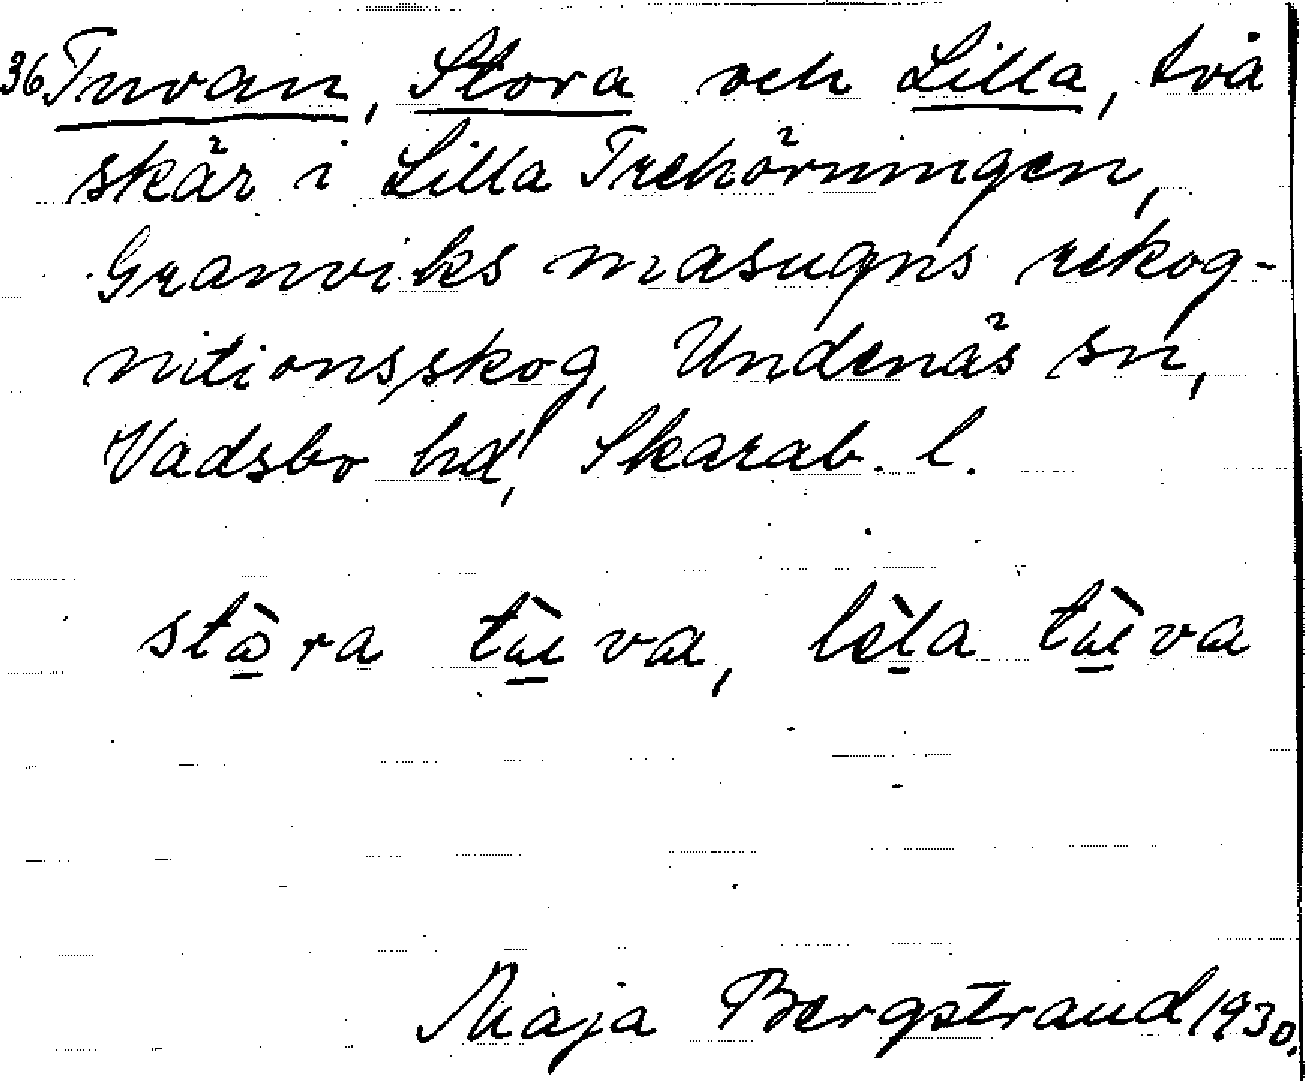 36 Tuvan, Stora och Lilla, två
skär i Lilla Trehörningen,
Granviks masugns rekog-
nitionsskog, Undenäs sn,
Vadsbo hd, Skarab. l.
stò̱ra tù̱va, lè̱la tù̱va
Maja Bergstrand 1930.